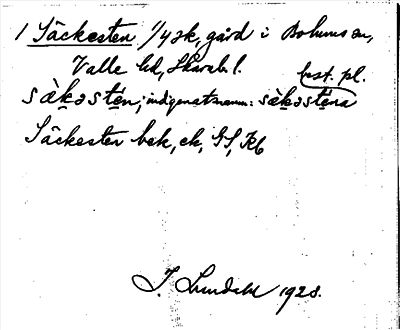 1 Säckesten 1/4 sk, gård i Bolums sn,
Valle hd, Skarab. l.
best. pl.
sàkəsten; indigenatsnamn: sàkəstena
Säckesten bek, ek, GS, Kb
I. Lundahl 1928.